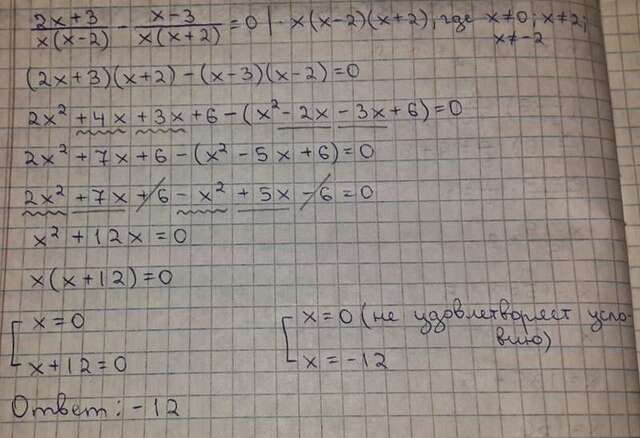 (2x+3)/(x(x-2)) - (x-3)/(x(x+2)) = 0 | · x(x-2)(x+2), где x≠0; x≠2;
x≠-2
(2x+3)(x+2)-(x-3)(x-2)=0
2x²+4x+3x+6-(x²-2x-3x+6)=0
2x²+7x+6-(x²-5x+6)=0
2x²+7x+6-x²+5x-6=0
x²+12x=0
x(x+12)=0
[ x=0 [ x=0 (не удовлетворяет усло-
вию)
x+12=0 x=-12
Ответ: -12